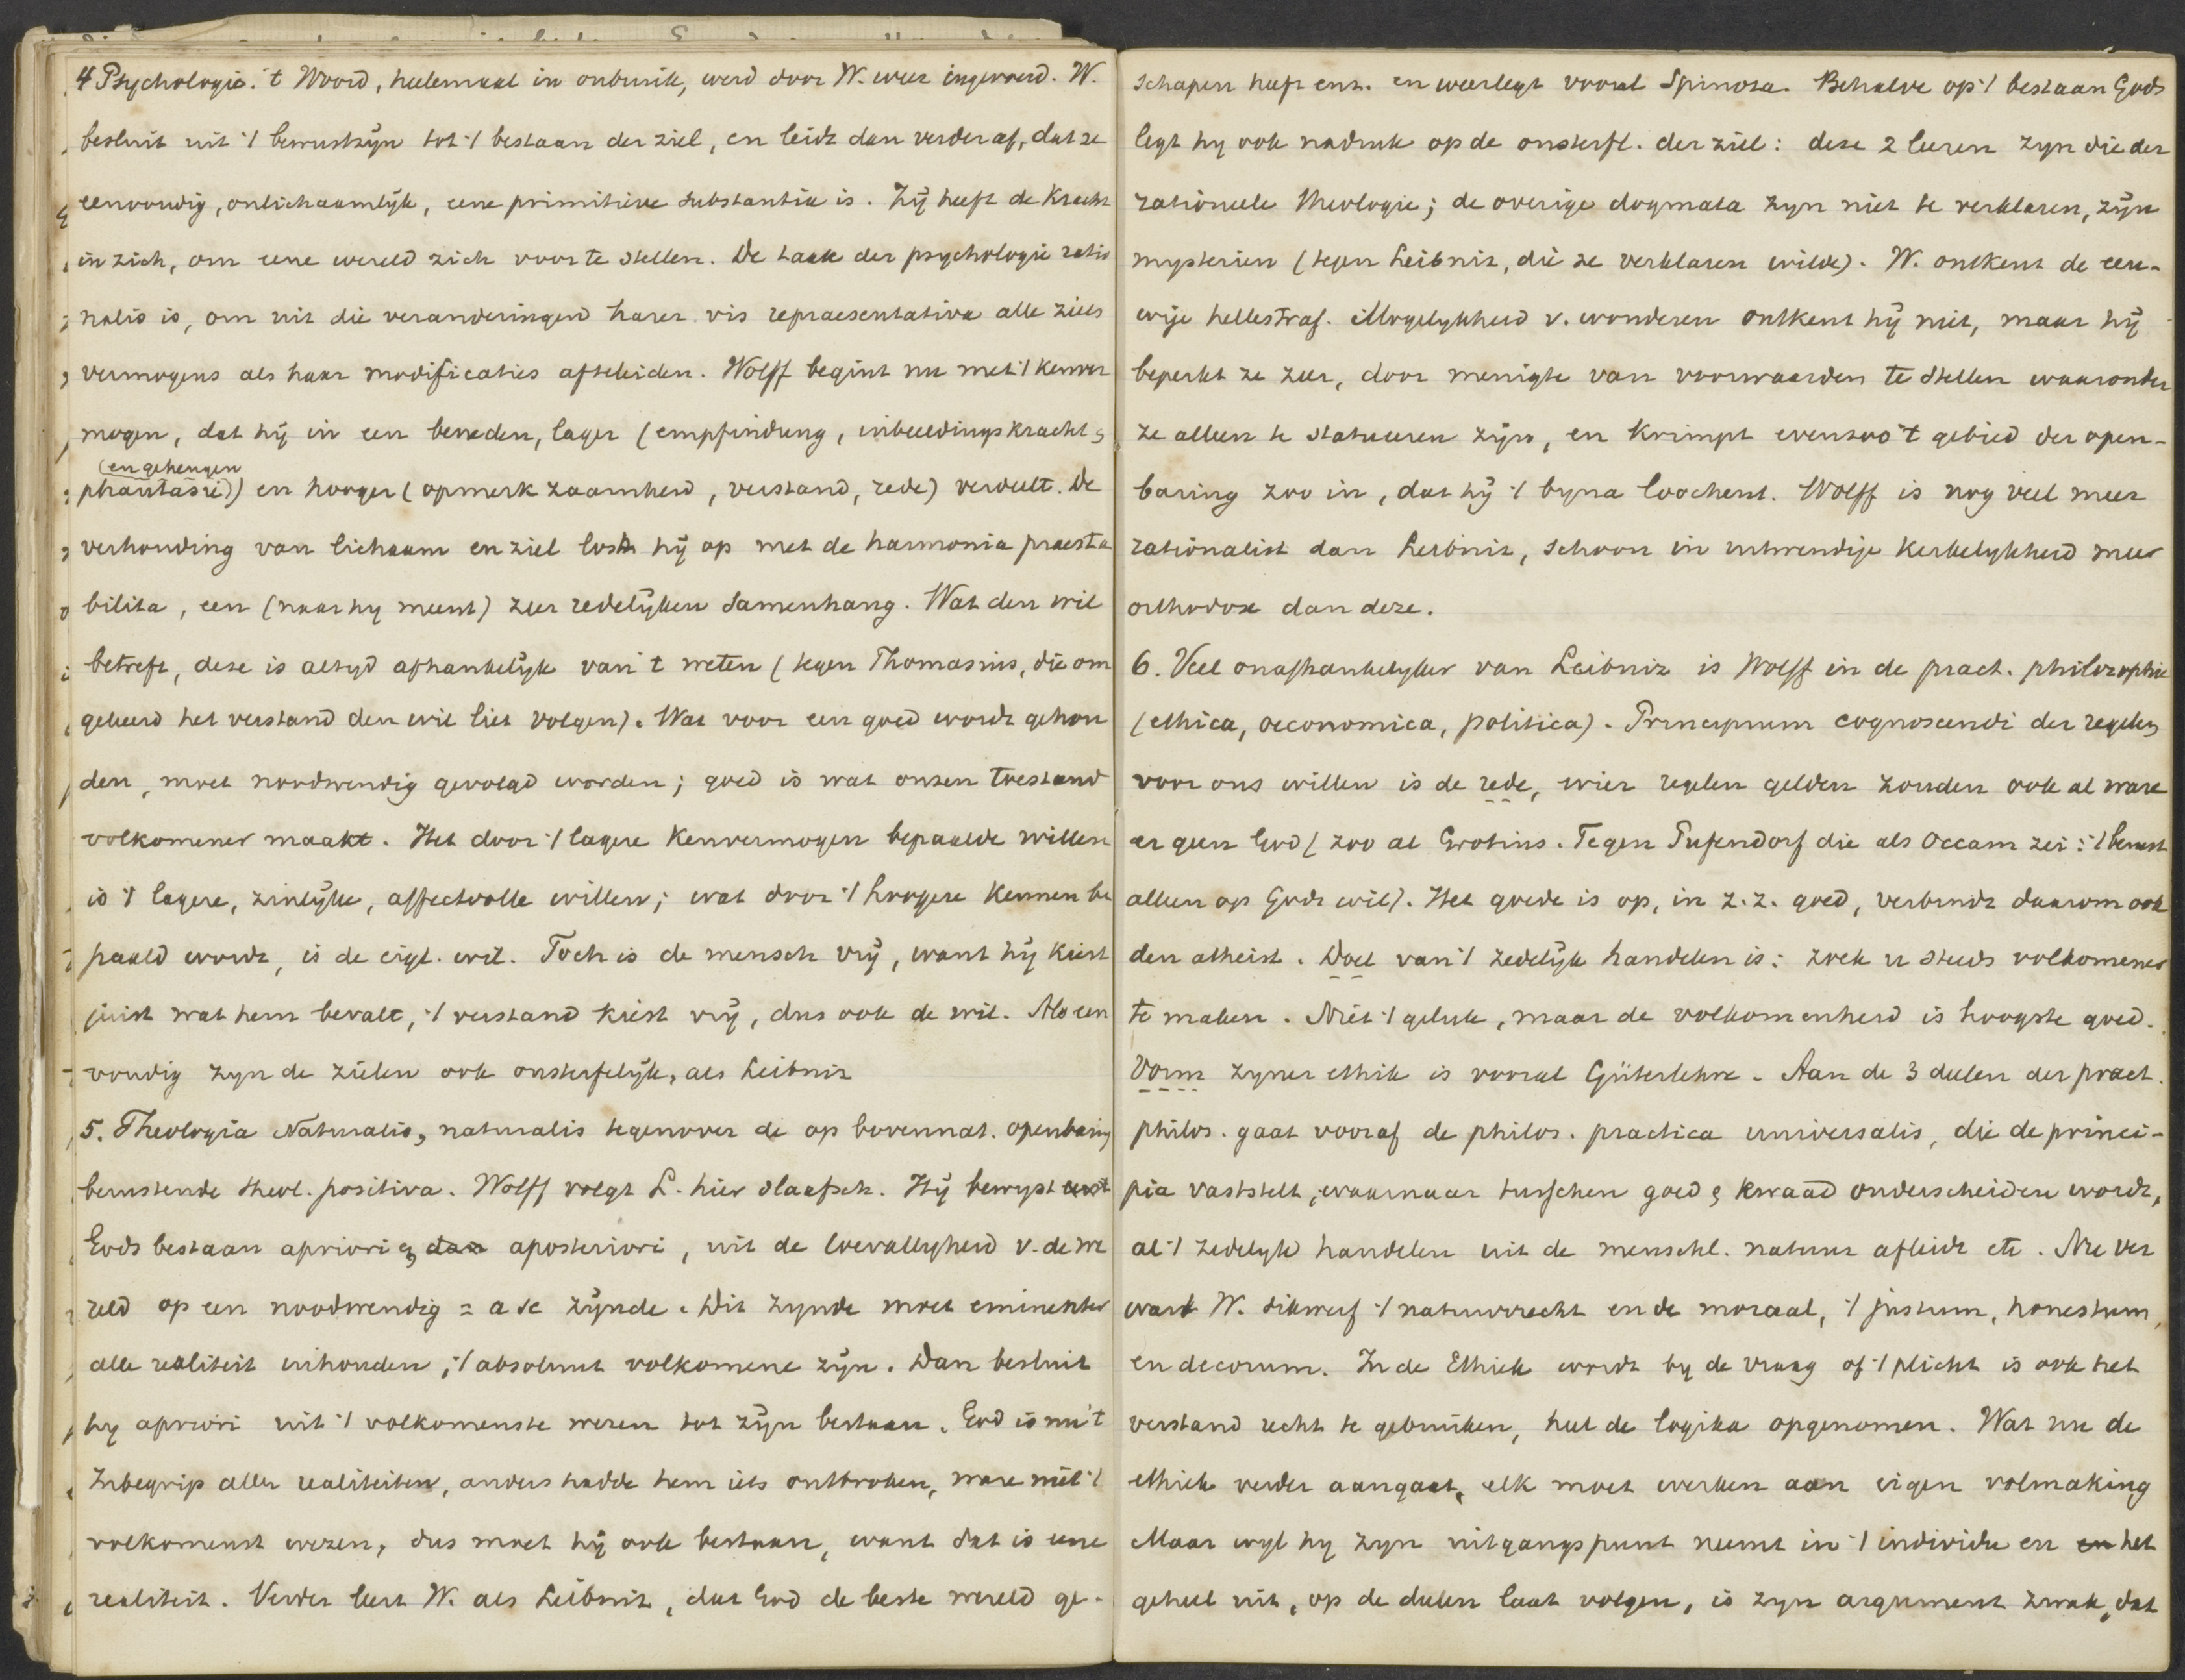 4 Psychologie. 't Woord, heelemaal in onbruik, werd door W. weer ingevoerd. W.
besluit uit 't bewustzijn tot 't bestaan der ziel, en leidt dan verder af, dat ze
eenvoudig, onlichaamlijk, eene primitieve substantia is. Zij heeft de kracht
in zich, om eene wereld zich voor te stellen. De taak der psychologie ratio
nalis is, om uit die veranderingen harer vis repraesentativa alle ziels
vermogens als haar modificaties afteleiden. Wolff begint nu met 't kenver
mogen, dat hij in een beneden, lager (empfindung, inbeeldingskracht &
(en geheugen
phantasie)) en hooger (opmerkzaamheid, verstand, rede) verdeelt. De
verhouding van lichaam en ziel lost hij op met de harmonia praesta
bilita, een (naar hy meent) zeer redelijken samenhang. Wat den wil
betreft, deze is altyd afhankelijk van 't weten (tegen Thomasius, die om
gekeerd het verstand den wil liet volgen). Wat voor een goed wordt gehou
den, moet noodwendig gevolgd worden; goed is wat onzen toestand
volkomener maakt. Het door 't lagere kenvermogen bepaalde willen
is 't lagere, zinlijke, affectvolle willen; wat door 't hoogere kennen be
paald wordt, is de eigl. wil. Toch is de mensch vrij, want hij kiest
juist wat hem bevalt, 't verstand kiest vrij, dus ook de wil. Als een
voudig zyn de zielen ook onsterfelijk, als Leibniz
5. Theologia Naturalis, naturalis tegenover de op bovennat. openbaring
berustende theol. positiva. Wolff volgt L. hier slaafsch. Hij bewyst
Gods bestaan apriori & dan aposteriori, uit de toevalligheid v. de we
reld op een noodwendig = a se zijnde. Dit zynde moet eminenter
alle realiteit inhouden, 't absoluut volkomene zijn. Dan besluit
hy apriori uit 't volkomenste wezen tot zijn bestaan. God is nu 't
Inbegrip aller realiteiten, anders hadde hem iets ontbroken, ware niet 't
volkomenst wezen, dus moet hij ook bestaan, want dat is eene
realiteit. Verder leert W. als Leibniz, dat God de beste wereld ge-
schapen heeft enz. en weerlegt vooral Spinoza. Behalve op 't bestaan Gods
legt hy ook nadruk op de onsterfl. der ziel: deze 2 leeren zyn die der
rationeele theologie; de overige dogmata zyn niet te verklaren, zijn
mysterien (tegen Leibniz, die ze verklaren wilde). W. ontkent de eeu-
wige hellestraf. Mogelykheid v. wonderen ontkent hij niet, maar hij
beperkt ze zeer, door menigte van voorwaarden te stellen waaronder
ze alleen te statueeren zijn, en krimpt evenzoo 't gebied der open-
baring zoo in, dat hij 't byna loochent. Wolff is nog veel meer
rationalist dan Leibniz, schoon in uitwendige kerkelykheid meer
orthodox dan deze.
6. Veel onafhankelyker van Leibniz is Wolff in de pract. philosophie
(ethica, oeconomica, politica). Principium cognoscendi der regelen
voor ons willen is de rede, wier regelen gelden zouden ook al ware
er geen God (zoo al Grotius. Tegen Pufendorf die als Occam zei: 't berust
alleen op Gods wil). Het goede is op, in z.z. goed, verbindt daarom ook
den atheist. Doel van 't zedelijk handelen is: zoek u steeds volkomener
te maken. Niet 't geluk, maar de volkomenheid is hoogste goed.
Vorm zyner ethik is vooral Güterlehre. Aan de 3 deelen der pract.
philos. gaat vooraf de philos. practica universalis, die de princi-
pia vaststelt, waarnaar tusschen goed & kwaad onderscheiden wordt,
al 't zedelyk handelen uit de menschl. natuur afleidt etc. Nu ver
wart W. dikwerf 't natuurrecht en de moraal, 't justum, honestum,
en decorum. In de Ethiek wordt by de vraag of 't plicht is ook het
verstand recht te gebruiken, heel de logika opgenomen. Wat nu de
ethiek verder aangaat, elk moet werken aan eigen volmaking
Maar wyl hy zyn uitgangspunt neemt in 't individu en en het
geheel uit, op de deelen laat volgen, is zyn argument zwak, dat